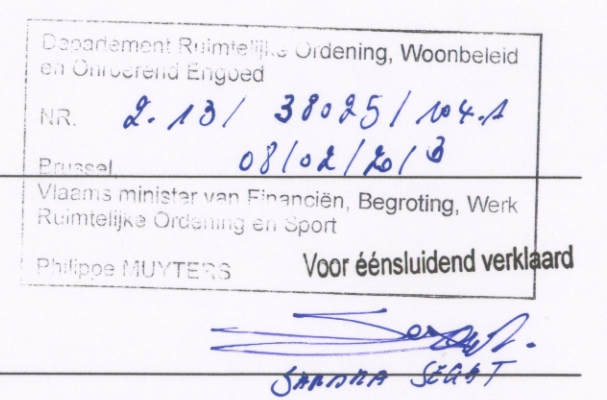 Departement Ruimtelijke Ordening, Woonbeleid
en Onroerend Erfgoed
NR. 2.13/ 38025/104.1
Brussel 08/02/2013
Vlaams minister van Financiën, Begroting, Werk
Ruimtelijke Ordening en Sport
Philippe MUYTERS
Voor éénsluidend verklaard
SANDRA